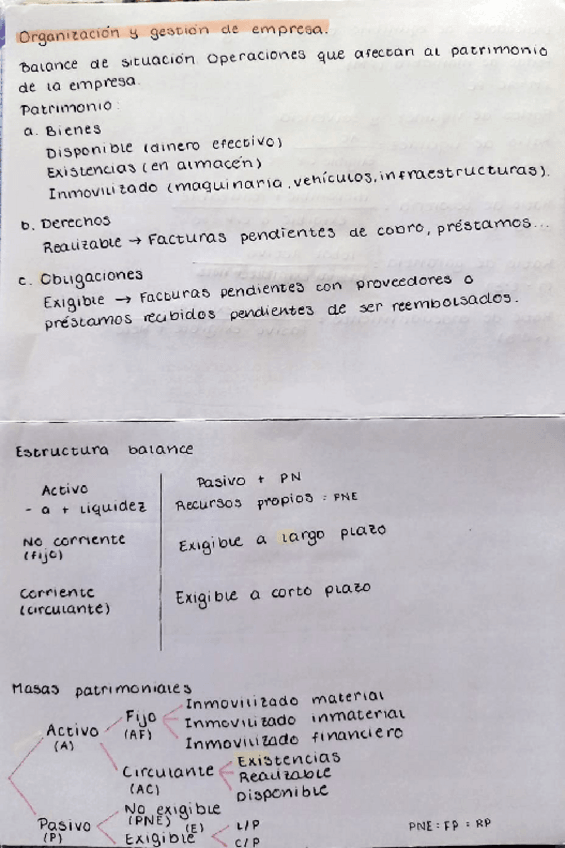 Organización y gestión de empresa.
Balance de situación Operaciones que afectan al patrimonio
de la empresa.
Patrimonio:
a. Bienes
Disponible (dinero efectivo)
Existencias (en almacén)
Inmovilizado (maquinaria, vehículos, infraestructuras).
b. Derechos
Realizable → Facturas pendientes de cobro, préstamos...
c. Obligaciones
Exigible → Facturas pendientes con proveedores o
préstamos recibidos pendientes de ser reembolsados.
Estructura balance
Activo
- a + liquidez
No corriente
(fijo)
Corriente
(circulante)
Pasivo + PN
Recursos propios : PNE
Exigible a largo plazo
Exigible a corto plazo
Masas patrimoniales
Activo
(A)
Fijo
(AF)
Inmovilizado material
Inmovilizado inmaterial
Inmovilizado financiero
Circulante
(AC)
Existencias
Realizable
Disponible
Pasivo
(P)
No exigible
(PNE)
Exigible
(E)
L/P
C/P
PNE : FP : RP